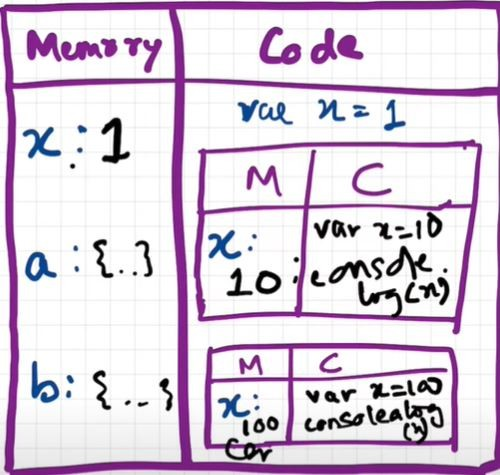 Memory Code
var x = 1
x : 1
M C
x:
10 :
var x=10
console.
log(x)
a : {..}
M C
x:
100
var x=100
consolealog
(x)
b: {..}